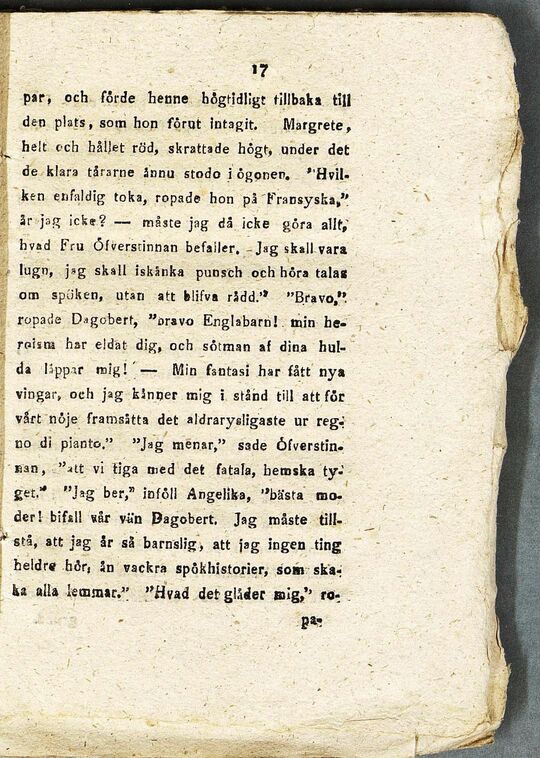 17
par, och förde henne högtidligt tillbaka till
den plats, som hon förut intagit. Margrete,
helt och hållet röd, skrattade högt, under det
de klara tårarne ännu stodo i ögonen. "Hvil-
ken enfaldig toka, ropade hon på Fransyska,"
är jag icke? — måste jag då icke göra allt,
hvad Fru Öfverstinnan befaller. Jag skall vara
lugn, jag skall iskänka punsch och höra talas
om spöken, utan att blifva rädd." "Bravo,"
ropade Dagobert, "bravo Englabarn! min he-
roisma har eldat dig, och sötman af dina hul-
da läppar mig! — Min fantasi har fått nya
vingar, och jag känner mig i stånd till att för
vårt nöje framsätta det aldrarysligaste ur reg-
no di pianto." "Jag menar," sade Öfverstin-
nan, "att vi tiga med det fatala, hemska ty-
get." "Jag ber," inföll Angelika, "bästa mo-
der! bifall vår vän Dagobert. Jag måste till-
stå, att jag är så barnslig, att jag ingen ting
heldre hör, än vackra spökhistorier, som ska-
ka alla lemmar." "Hvad det gläder mig," ro-
pa-